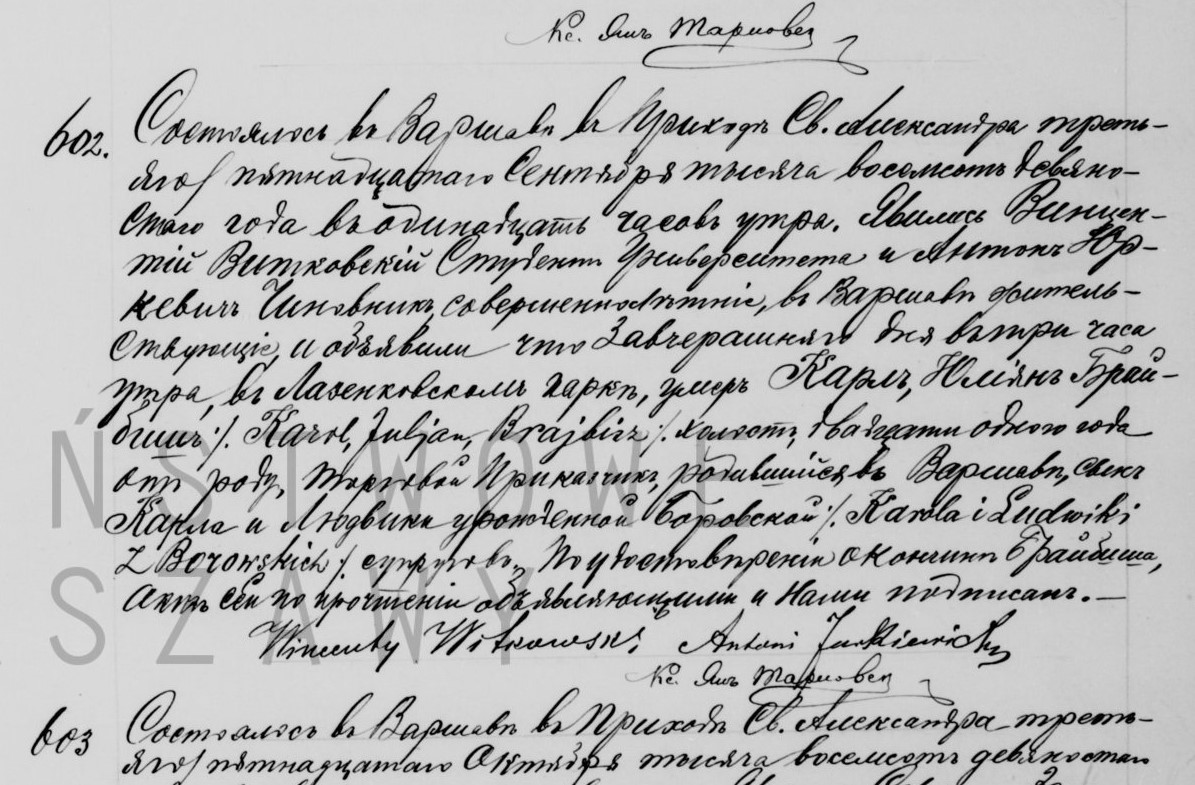 Кс. Янъ Тарновец
602. Состоялось въ Варшавѣ въ Приходѣ Св. Александра треть-
яго / пятнадцатаго Сентября тысяча восемсотъ девяно-
стаго года въ одинадцать часовъ утра. Явились Винцен-
тій Витковскій Студентъ Университета и Антонъ Юр-
кевичъ Чиновникъ, совершеннолѣтніе, въ Варшавѣ житель-
ствующіе, и объявили что Завчерашняго дня въ три часа
утра, въ Лазенковскомъ паркѣ, умеръ Карлъ, Юліянъ Брай-
бишъ ·/. Karol, Juljan, Brajbisz ·/. холостъ, двадцати одного года
отъ роду, торговой Приказчикъ, родившійся въ Варшавѣ, сынъ
Карла и Людвики урожденной Боровской ·/. Karola i Ludwiki
z Borowskich ·/. супруговъ. По удостовѣреніи о кончинѣ Брайбиша,
актъ сей по прочтеніи объявляющими и Нами подписанъ. —
Wincenty Witkowski Antoni Jurkiewicz
Кс. Янъ Тарновец
603 Состоялось въ Варшавѣ въ Приходѣ Св. Александра треть-
яго / пятнадцатаго Октября тысяча восемсотъ девяностаго
ŃSTWOWE
SZAWY